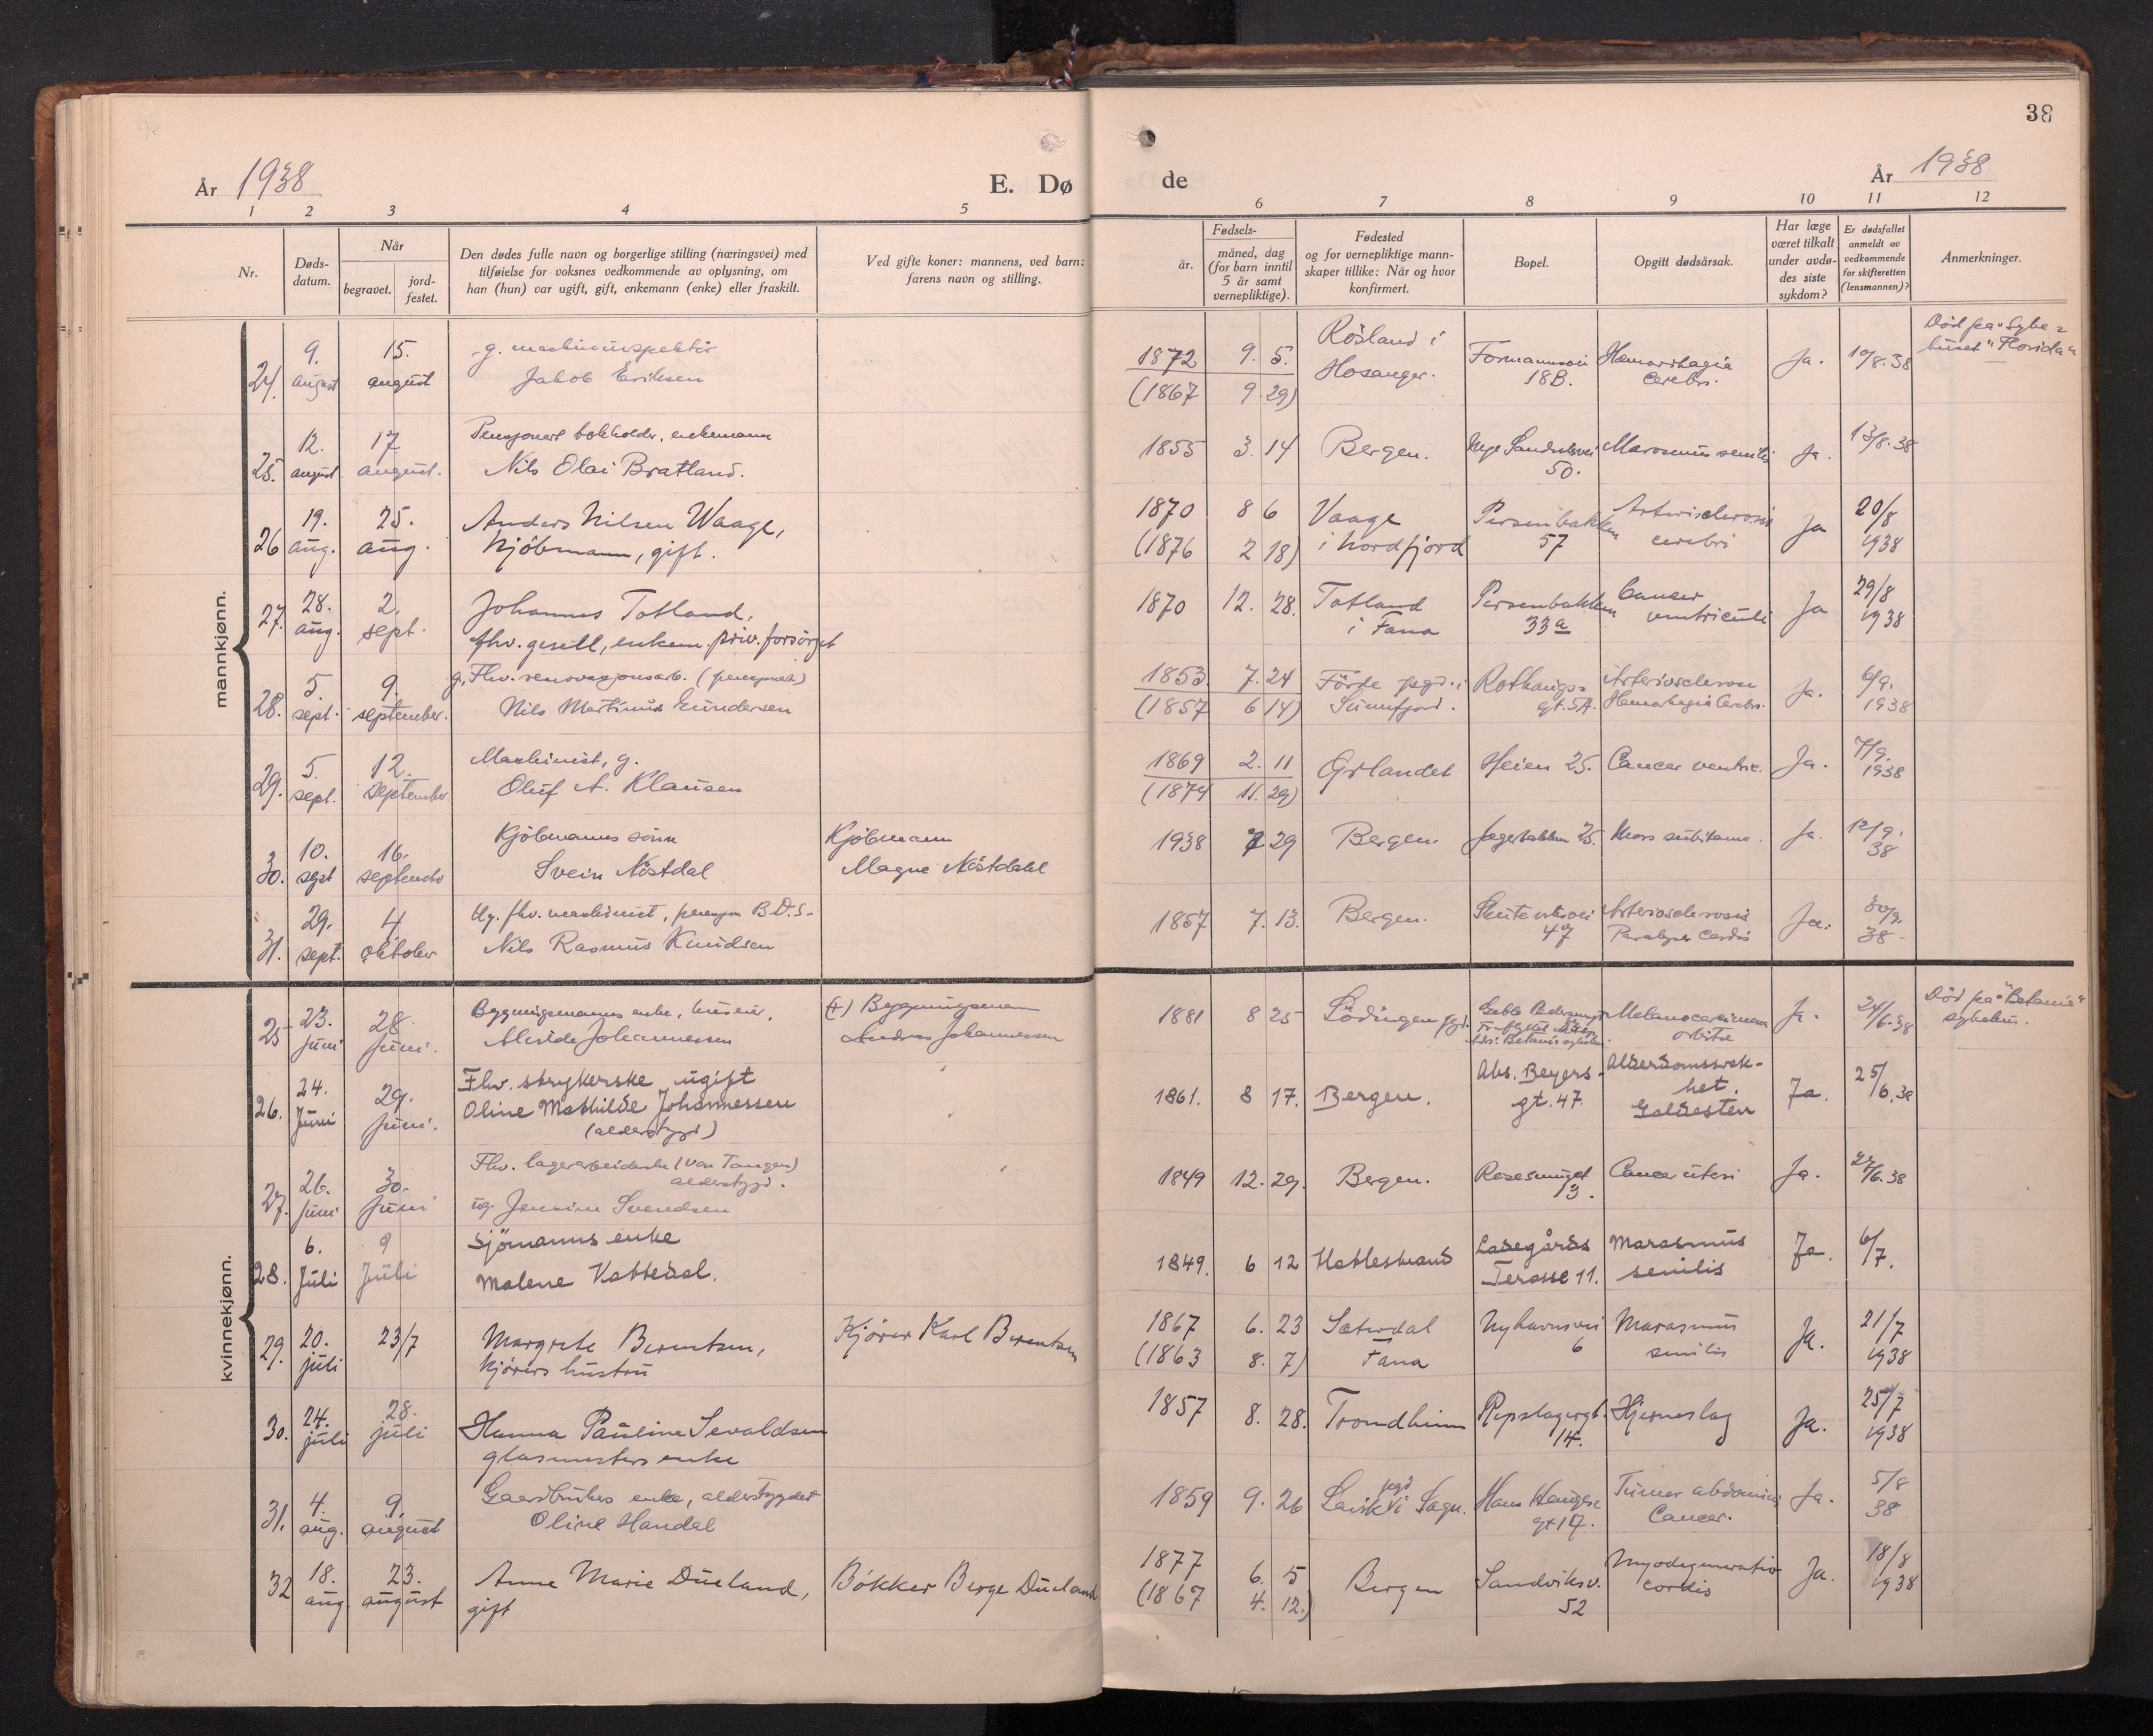 38
År 1938
E. Dø de
År 1938
1 2 3 4 5 6 7 8 9 10 11 12
Nr.
Døds-
datum.
Når
begravet.
jord-
festet.
Den dødes fulle navn og borgerlige stilling (næringsvei) med
tilføielse for voksnes vedkommende av oplysning, om
han (hun) var ugift, gift, enkemann (enke) eller fraskilt.
Ved gifte koner: mannens, ved barn:
farens navn og stilling.
Fødsels-
år.
måned, dag
(for barn inntil
5 år samt
vernepliktige).
Fødested
og for vernepliktige mann-
skaper tillike: Når og hvor
konfirmert.
Bopel.
Opgitt dødsårsak.
Har læge
været tilkalt
under avdø-
des siste
sykdom?
Er dødsfallet
anmeldt av
vedkommende
for skifteretten
(lensmannen)?
Anmerkninger.
mannkjønn.
24. 9. august 15. august
g. maskininspektør
Jakob Eriksen
1872 9. 5.
(1867 9. 29)
Rösland i
Hosanger.
Formannsvei
18B.
Hemorrhagia
cerebri.
Ja. 10/8.38
Död på Syke-
huset "Florida"
25. 12. august 17 august.
Pensjonert bokholder, enkemann
Nils Olai Bratland.
1855 3. 14 Bergen.
Nye Sandviksvei
50.
Marasmus senilis Ja. 13/8.38
26 19. aug. 25. aug.
Anders Nilsen Waage,
kjöbmann, gift.
1870 8 6
(1876 2 18)
Vaage
i Nordfjord
Persenbakken
57
Arterisclerosis
cerebri
Ja 20/8
1938
27. 28. aug. 2. sept.
Johannes Totland,
fhv. gesell, enkem. priv. forsörget
1870 12. 28.
Totland
i Fana
Persenbakken
33a
Cancer
ventriculi
Ja 29/8
1938
28. 5. sept. 9. september.
g. Fhv. renovasjonsarb. (pensjonert)
Nils Martinus Gundersen
1853. 7. 24
(1857 6 14)
Förde pgd. i
Sunnfjord.
Rothaugs-
gt. 5A.
Arteriosclerose
Hemorhagia Cerebri.
Ja. 6/9.
1938
29. 5. sept. 12. september
Maskinist, g.
Oluf A. Klausen
1869 2. 11
(1874 11. 29)
Heien 25. Cancer ventric. Ja. 7/9.
1938
30. 10. sept 16. septemb
Kjöbmanns sönn
Svein Nöstdal
Kjöbmann
Magne Nöstdahl
1938 7 29 Bergen. Jægerbakken 25. Mors subitanea. Ja. 12/9.
38
31. 29. sept. 4. oktober
Ug. fhv. maskinist, pensjon B.D.S.
Nils Rasmus Knudsen
1857 7. 13. Bergen.
Skuteviksvei
47
Arteriosclerosis
Paralysis Cordis
Ja. 30/9.
38
kvinnekjønn.
25 23. Juni 28. Juni.
Bygningsmanns enke, huseier,
Alvilde Johannessen
(+) Bygningsmann
Andreas Johannessen
1881 8 25 Lödingen pgd.
Melanocarcinom
orbitæ
Ja. 24/6.38
Död på "Betania"
sykehus.
26. 24. Juni 29. Juni.
Fhv. strykerske, ugift
Oline Mathilde Johannessen
(alderstrygd)
1861. 8 17. Bergen.
Abs. Beyers-
gt. 47.
Alderdomssvek-
het.
Galdesten
Ja. 25/6.38
27. 26. Juni 30. Juni
Fhv. lagerarbeiderske (von Tangen)
alderstrygd.
ug. Jensine Svendsen
1849 12. 29. Bergen.
Rosesmuget
3.
Cancer uteri Ja. 27/6.38
28. 6. Juli 9 Juli
Sjömanns enke
Malene Vattedal.
1849. 6 12 Hatlestrand
Ladegårds
Terasse 11.
Marasmus
senilis
Ja. 6/7.
29. 20. juli 23/7
Margrete Berentsen,
kjörers hustru
Kjörer Karl Berentsen
1867 6. 23
(1863 8. 7)
Sæterdal
Fana
Nyhavnsvei
6
Marasmus
senilis
Ja. 21/7
1938
30. 24. juli 28. juli
Hanna Pauline Sevaldsen
glasmesters enke
1857 8. 28. Trondheim
Repslagergt.
14.
Hjerneslag Ja. 25/7
1938
31. 4. aug. 9. august
Gaardbrukers enke, alderstrygdet
Oline Handal
1859 9. 26 Lavik pgd i Sogn.
Hans Hauges
gt 17.
Tumor abdominis
Cancer.
Ja. 5/8
38
32 18. aug. 23. august
Anne Marie Dueland,
gift
Bökker Berge Dueland
1877 6. 5
(1867 4. 12.)
Bergen
Sandviksv.
52
Myodegeneratio
cordis
Ja. 18/8
1938